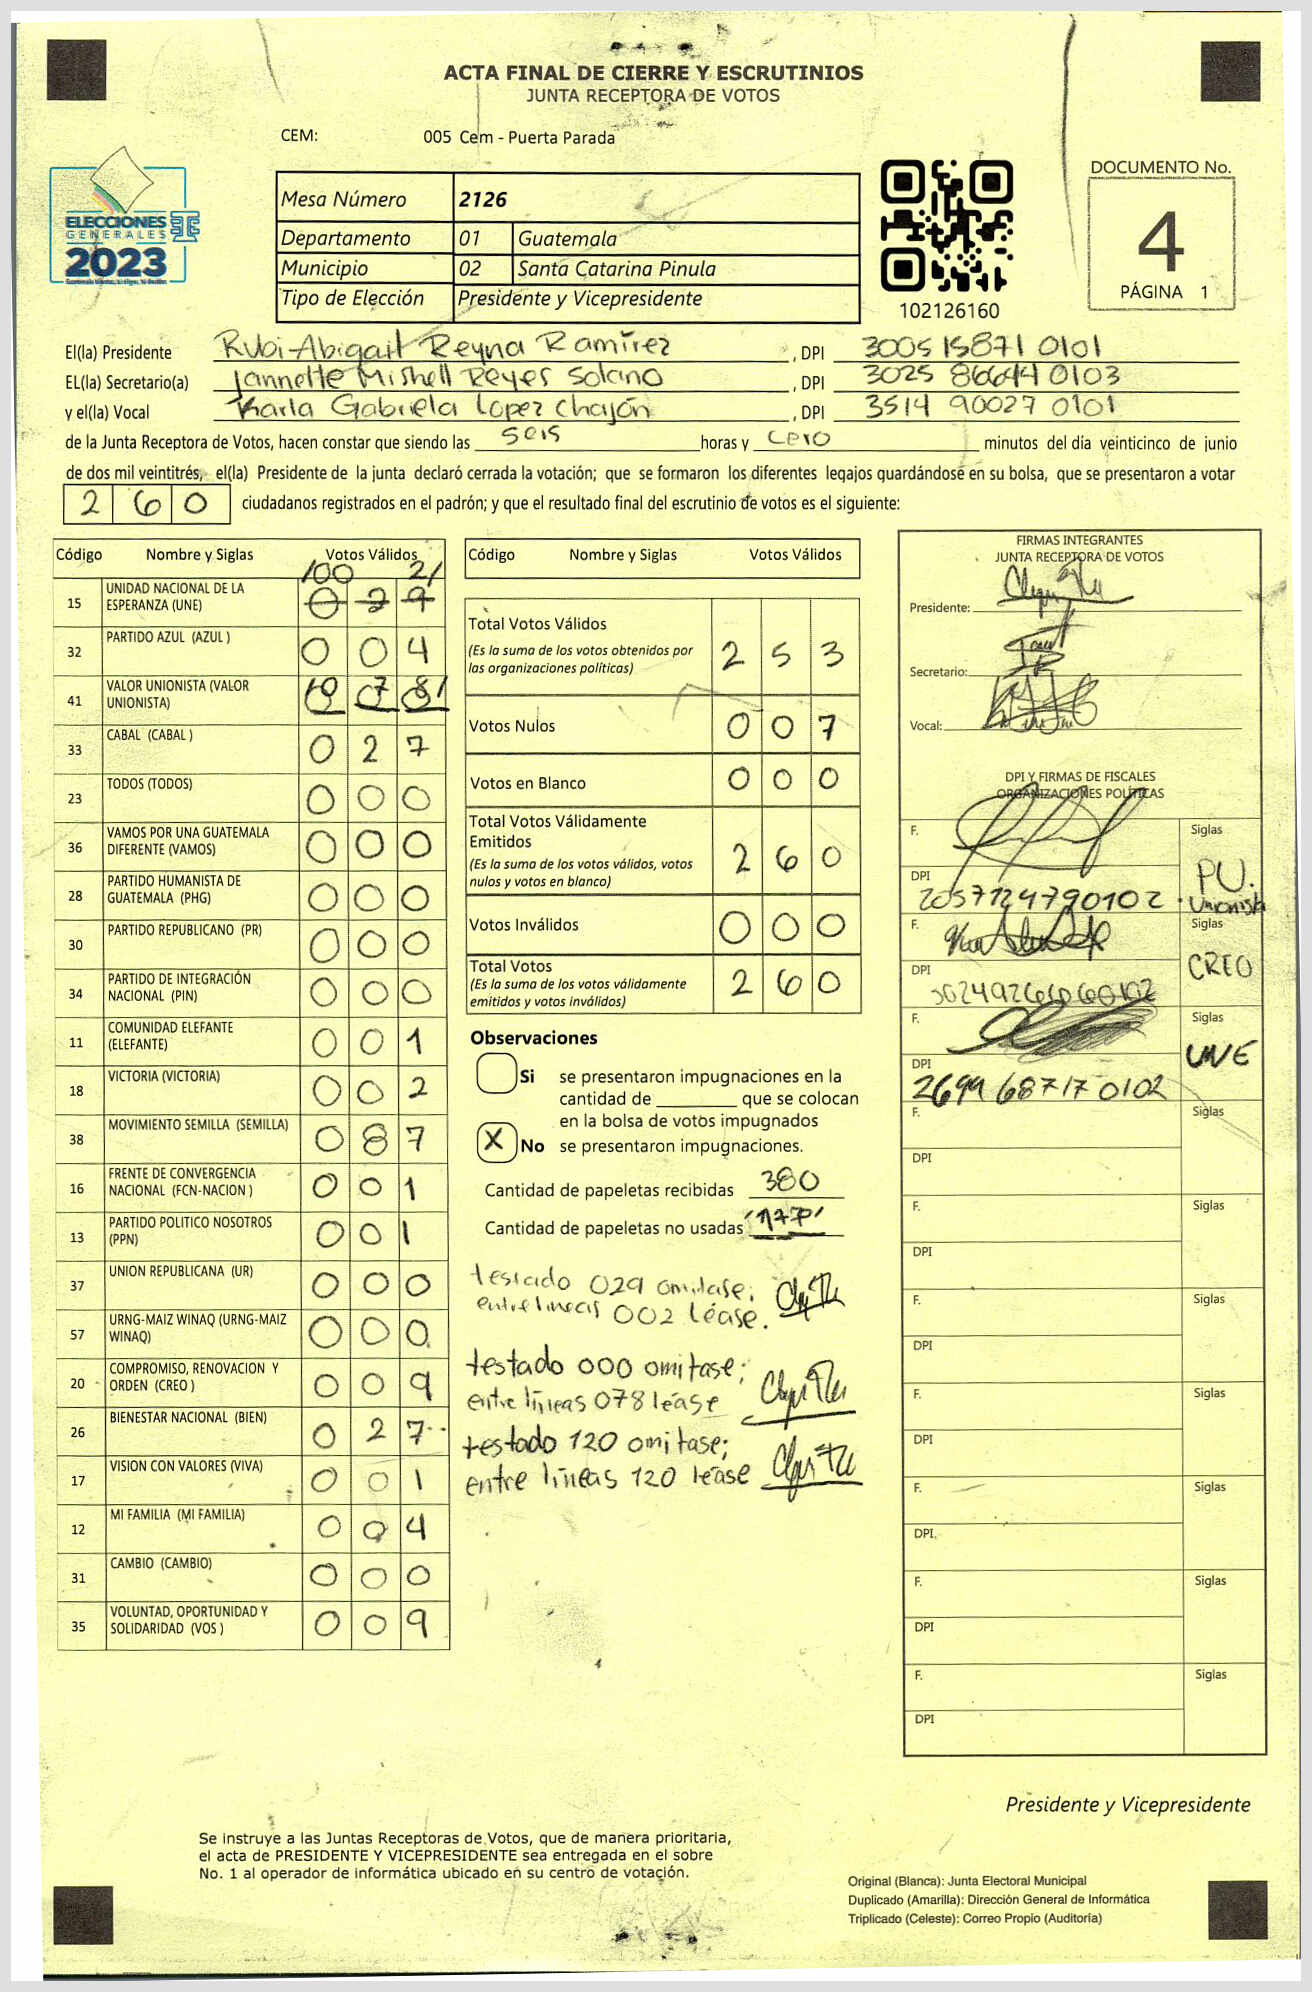 ACTA FINAL DE CIERRE Y ESCRUTINIOS
JUNTA RECEPTORA DE VOTOS
CEM: 005 Cem - Puerta Parada
ELECCIONES
GENERALES
2023
Mesa Número 2126
Departamento 01 Guatemala
Municipio 02 Santa Catarina Pinula
Tipo de Elección Presidente y Vicepresidente
102126160
DOCUMENTO No.
4
PÁGINA 1
El(la) Presidente Rubi Abigail Reyna Ramírez , DPI 3005 15871 0101
EL(la) Secretario(a) Jannette Mishell Reyes Solano , DPI 3025 86644 0103
y el(la) Vocal Karla Gabriela Lopez Chajón , DPI 3514 90027 0101
de la Junta Receptora de Votos, hacen constar que siendo las seis horas y cero minutos del día veinticinco de junio
de dos mil veintitrés, el(la) Presidente de la junta declaró cerrada la votación; que se formaron los diferentes legajos guardándose en su bolsa, que se presentaron a votar
2 6 0 ciudadanos registrados en el padrón; y que el resultado final del escrutinio de votos es el siguiente:
Código Nombre y Siglas Votos Válidos
15 UNIDAD NACIONAL DE LA ESPERANZA (UNE)
32 PARTIDO AZUL (AZUL ) 0 0 4
41 VALOR UNIONISTA (VALOR UNIONISTA)
33 CABAL (CABAL ) 0 2 7
23 TODOS (TODOS) 0 0 0
36 VAMOS POR UNA GUATEMALA DIFERENTE (VAMOS) 0 0 0
28 PARTIDO HUMANISTA DE GUATEMALA (PHG) 0 0 0
30 PARTIDO REPUBLICANO (PR) 0 0 0
34 PARTIDO DE INTEGRACIÓN NACIONAL (PIN) 0 0 0
11 COMUNIDAD ELEFANTE (ELEFANTE) 0 0 1
18 VICTORIA (VICTORIA) 0 0 2
38 MOVIMIENTO SEMILLA (SEMILLA) 0 8 7
16 FRENTE DE CONVERGENCIA NACIONAL (FCN-NACION ) 0 0 1
13 PARTIDO POLITICO NOSOTROS (PPN) 0 0 1
37 UNION REPUBLICANA (UR) 0 0 0
57 URNG-MAIZ WINAQ (URNG-MAIZ WINAQ) 0 0 0
20 COMPROMISO, RENOVACION Y ORDEN (CREO ) 0 0 9
26 BIENESTAR NACIONAL (BIEN) 0 2 7
17 VISION CON VALORES (VIVA) 0 0 1
12 MI FAMILIA (MI FAMILIA) 0 0 4
31 CAMBIO (CAMBIO) 0 0 0
35 VOLUNTAD, OPORTUNIDAD Y SOLIDARIDAD (VOS ) 0 0 9
Código Nombre y Siglas Votos Válidos
Total Votos Válidos 2 5 3
(Es la suma de los votos obtenidos por
las organizaciones políticas)
Votos Nulos 0 0 7
Votos en Blanco 0 0 0
Total Votos Válidamente
Emitidos 2 6 0
(Es la suma de los votos válidos, votos
nulos y votos en blanco)
Votos Inválidos 0 0 0
Total Votos 2 6 0
(Es la suma de los votos válidamente
emitidos y votos inválidos)
Observaciones
Si se presentaron impugnaciones en la
cantidad de ________ que se colocan
en la bolsa de votos impugnados
X No se presentaron impugnaciones.
Cantidad de papeletas recibidas 380
Cantidad de papeletas no usadas
testado 029 omitase;
entre lineas 002 léase.
testado 000 omitase;
entre líneas 078 léase
testado 120 omitase;
entre líneas 120 léase
FIRMAS INTEGRANTES
JUNTA RECEPTORA DE VOTOS
Presidente:
Secretario:
Vocal:
DPI Y FIRMAS DE FISCALES
ORGANIZACIONES POLÍTICAS
F. Siglas
PU.
Unionista
DPI 2057124790102
F. Siglas
CREO
DPI
F. Siglas
UNE
DPI
2699 68717 0102
F. Siglas
DPI
F. Siglas
DPI
F. Siglas
DPI
F. Siglas
DPI
F. Siglas
DPI
F. Siglas
DPI
F. Siglas
DPI
Presidente y Vicepresidente
Se instruye a las Juntas Receptoras de Votos, que de manera prioritaria,
el acta de PRESIDENTE Y VICEPRESIDENTE sea entregada en el sobre
No. 1 al operador de informática ubicado en su centro de votación.
Original (Blanca): Junta Electoral Municipal
Duplicado (Amarilla): Dirección General de Informática
Triplicado (Celeste): Correo Propio (Auditoría)